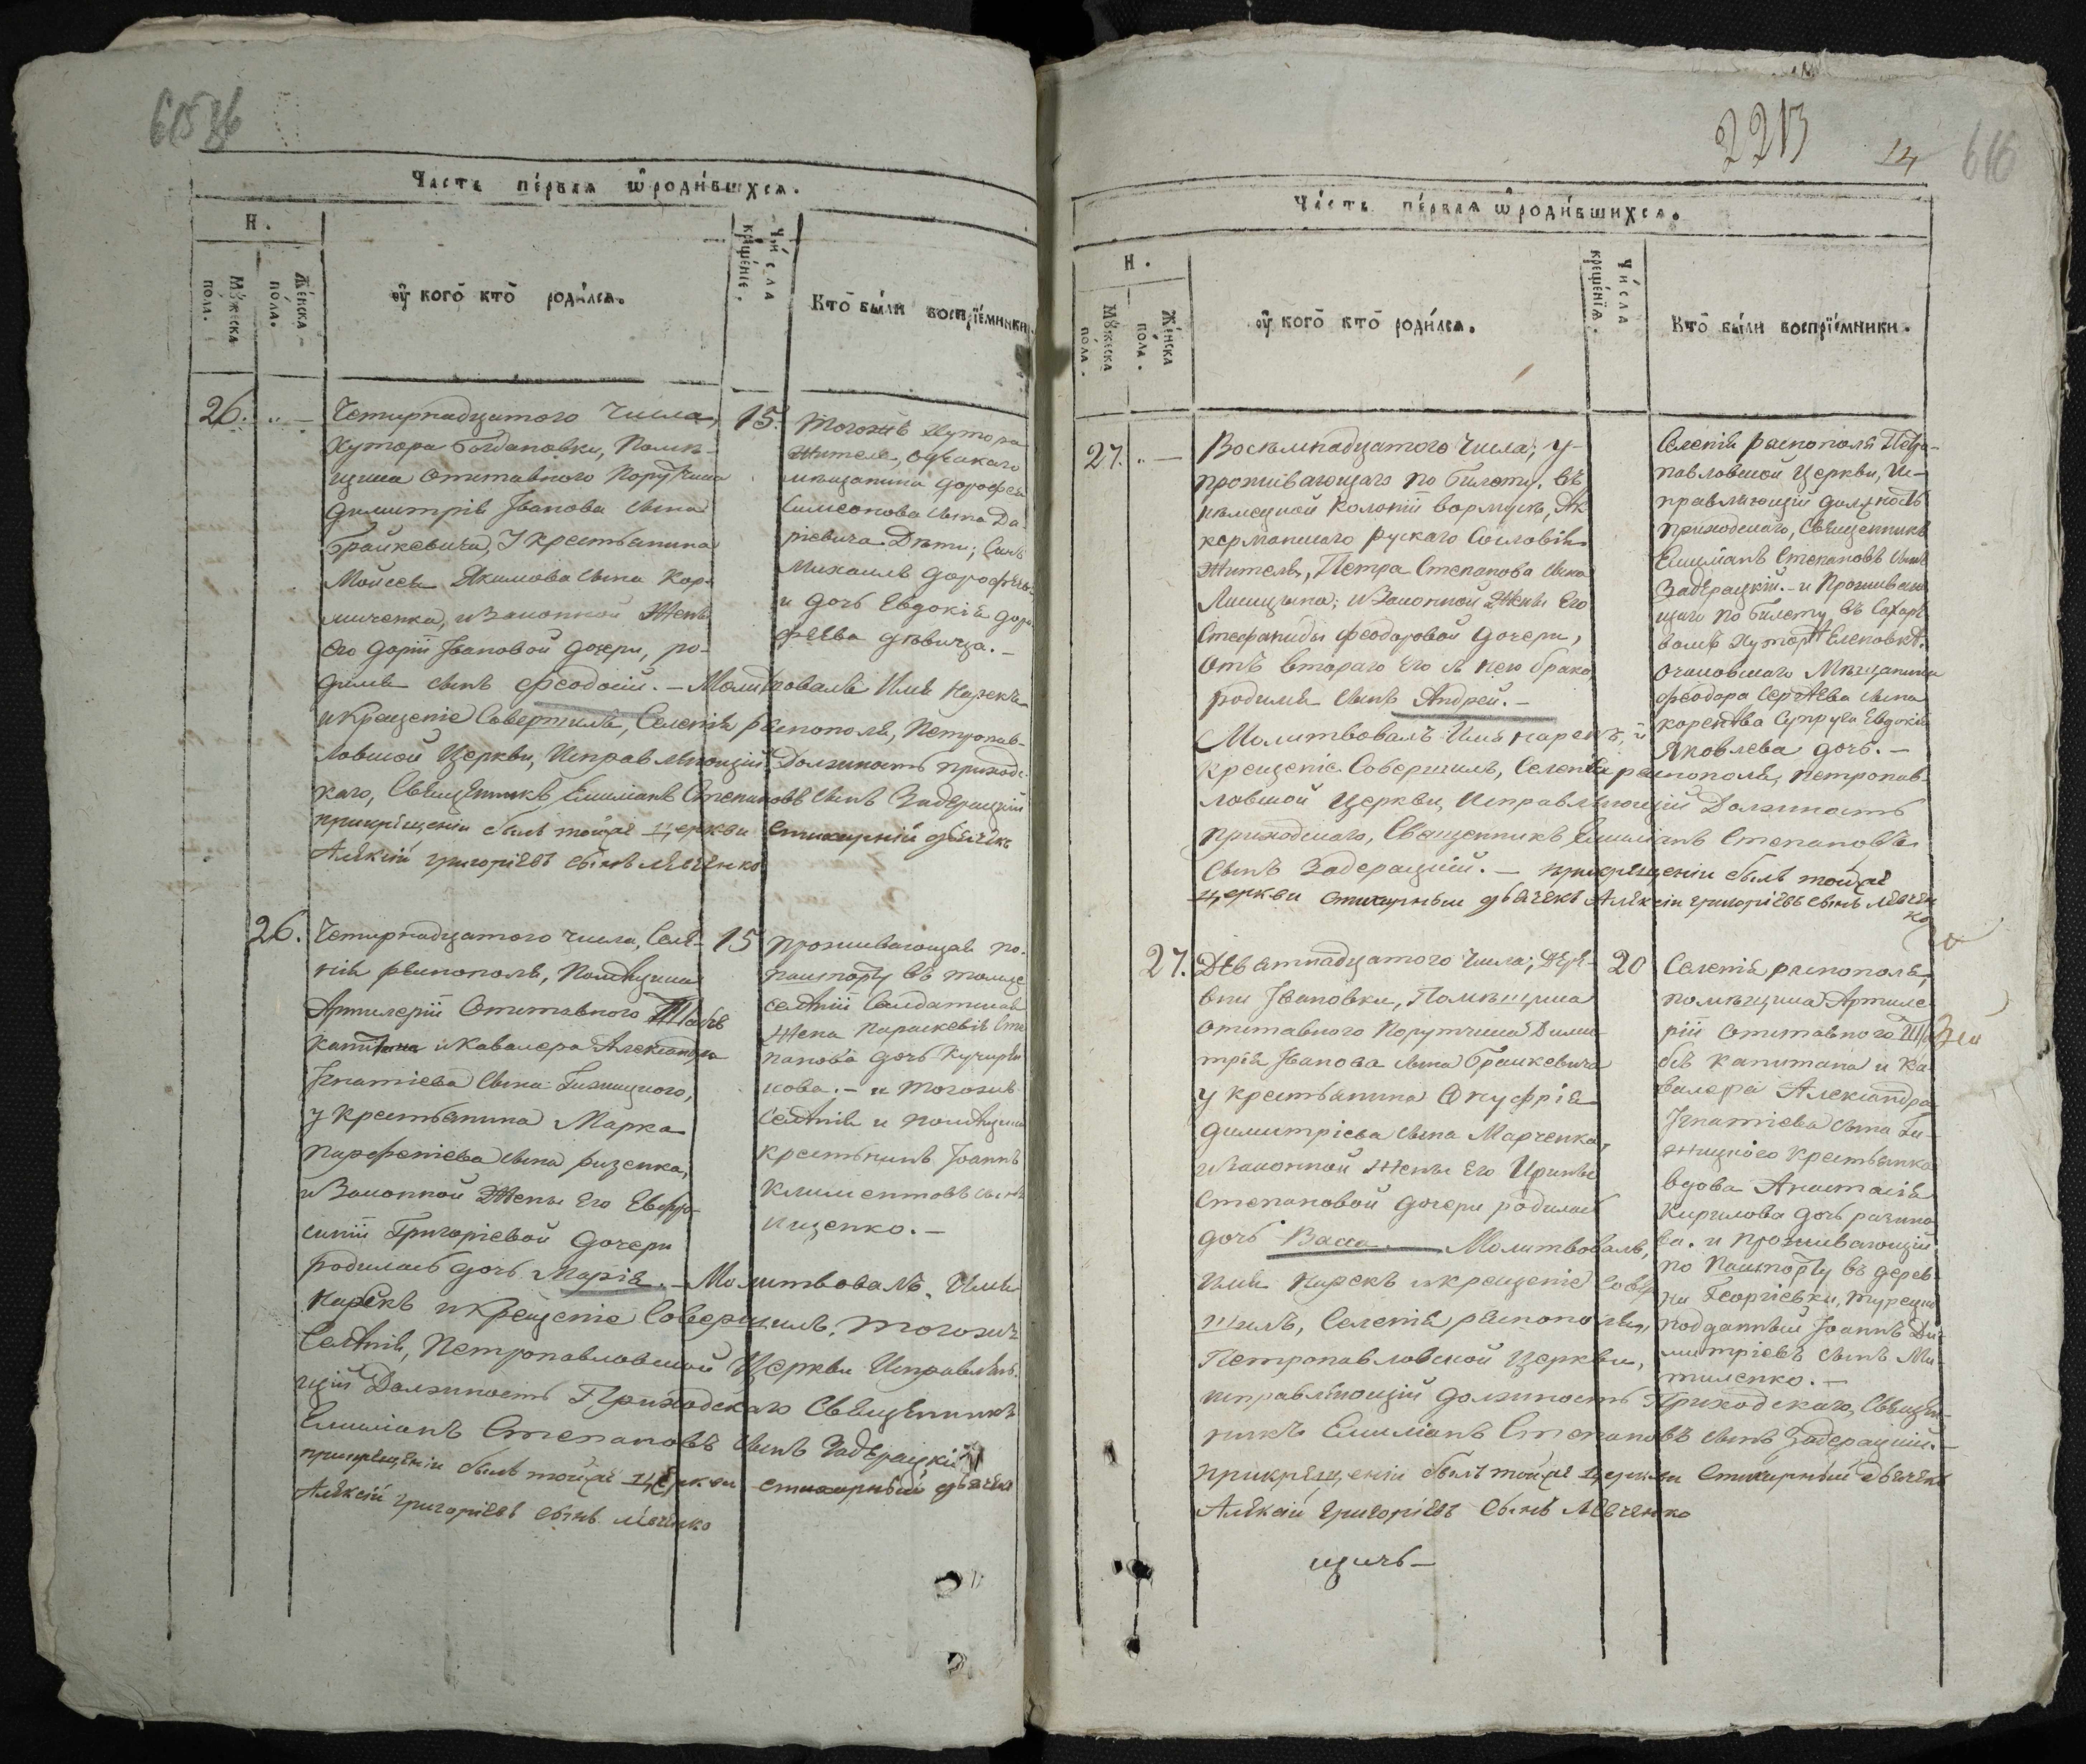 61586
Часть первая ѿ родившихся.
Н.
Мꙋжеска пола.
Женска пола.
оу кого кто родился.
Числа крещенїе.
Кто были воспрїемники.
26.
Четирнадцатого Числа,
Хутора Богдановки, Помѣ-
щика отставного Порутчика
Димитрія Іванова сына
Бранкевича, У крестьянина
Моисея Якимова сына Кор-
ниченка, и Законной Жены
его Дорїи Івановой дочери, ро-
дился сынъ Феодосій. — Молитвовалъ Имя Нарекъ
и крещеніе Совершилъ, Селенія распополя, Петропав-
ловской Церкви, Исправляющій Должность приходс-
каго, Священникъ Емиліанъ Степановъ сынъ Задерацкій
прикрещеніи былъ тойже церкви стихарный дьячекъ
Алексій григоріевъ сынъ Левченко
15.
Тогожъ Хутора
Жителя, одескаго
мещанина Дорофея
Симеонова сына Да-
ріевича Дѣти; Синъ
Михаилъ Дорофѣевъ
и дочь Евдокія Доро-
феева девица. —
26.
Четирнадцатого числа, Селе-
нія распополя, Помѣщика
Артилеріи Отставного Штабсъ
капитана и Кавалера Александра
Ігнатіева Сына Гижицкого,
у Крестьянина Марка
Парфеніева сына ризенка,
и Законной Жены Его Евфро-
синіи Григоріевой Дочери
родилась дочь Марія. — Молитвовалъ, Имя
нарекъ и крещеніе Совершилъ, тогожъ
Селенія, Петропавловской Церкви Исправляю-
щій Должность Приходскаго Священникъ
Емиліанъ Степановъ сынъ Задерацкій
прикрещеніи былъ тойже церкви стихарный дьячекъ
Алексій григоріевъ сынъ Левченко
15
проживающая по-
паспорту въ томже
селеніи Салдатская
жена Параскевія Сте-
панова дочь Кучеря-
кова. — и тогожъ
Селенія и помѣщика
крестьянинъ Іоаннъ
Климентовъ сынъ
ищенко. —
2213
14
616
Часть первая ѿ родившихся.
Н.
Мꙋжеска пола.
Женска пола.
оу кого кто родился.
Числа крещенїя.
Кто были воспрїемники.
27.
Восемнадцатого числа; у-
проживающаго по билету, въ
немецкой Колоніи вормсъ, Ак-
керманскаго рускаго Сословія
Жителя, Петра Степанова сына
Лисицына; и Законной Жены Его
Стефаниды Феодоровой дочери,
отъ втораго Его съ нею брака
родился сынъ Андрей. —
Молитвовалъ Имя нарекъ, и
крещеніе Совершилъ, Селенія распополя, петропав-
ловской Церкви, Исправляющій Должность
приходскаго, Священникъ Емиліанъ Степановъ
сынъ Задерацкій. — прикрещеніи былъ тойже
церкви стихарный дьячекъ Алексій григоріевъ сынъ Левчен
ко
Селенія распополя Петро-
павловской Церкви, Ис-
правляющій должность
приходскаго, Священникъ
Емиліанъ Степановъ сынъ
Задерацкій. — и Проживаю-
щаго по билету въ
Хуторѣ Еленовкѣ.
очаковскаго Мещанина
Феодора Сергѣева сына
коренева Супруга Евдокія
Яковлева дочь. —
27.
Девятнадцатого Числа; Дере-
вни Івановки, Помѣщика
отставного Порутчика Дими-
трія Іванова сына Бранкевича
у крестьянина Онуфрія
Димитріева сына Марченка,
и Законной Жены Его Ирины
Степановой дочери родилась
дочь Васса. — Молитвовалъ,
имя нарекъ и крещеніе совер-
шилъ, Селенія распополя,
Петропавловской Церкви,
исправляющій должность Приходскаго, Священ-
никъ Емиліанъ Степановъ сынъ Задерацкій. —
прикрещеніи былъ тойже церкви Стихарный дьячекъ
Алексій григоріевъ сынъ Левченко
20
Селенія распополя,
помѣщика Артиле-
ріи отставного Шта-
бсъ капитана и Ка-
валера Александра
Ігнатіева сына Ги-
жицкого крестьянка
вдова Анастасія
Кирилова дочь
ва. и проживающій
по паспорту въ дерев-
ни Георгіевки, турецкій
подданный Іоаннъ Ди-
митріевъ сынъ Ми-
тиленко. —